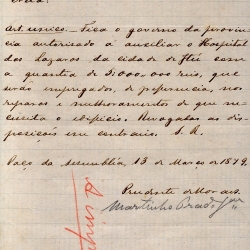 Art. unico. - Fica o governo da provin-
cia autorisado á auxiliar o Hospital
dos Lazaros da cidade de Itú com
a quantia de 5:000,000 reis, que
serão empregados, de preferencia, nos
reparos e melhoramentos de que ne-
cessita o edificio. Revogadas as dis-
posições em contrario. S. R.
Paço da Assemblea, 13 de Março de 1879.
Prudente de Moraes
Martinho Prado Jor